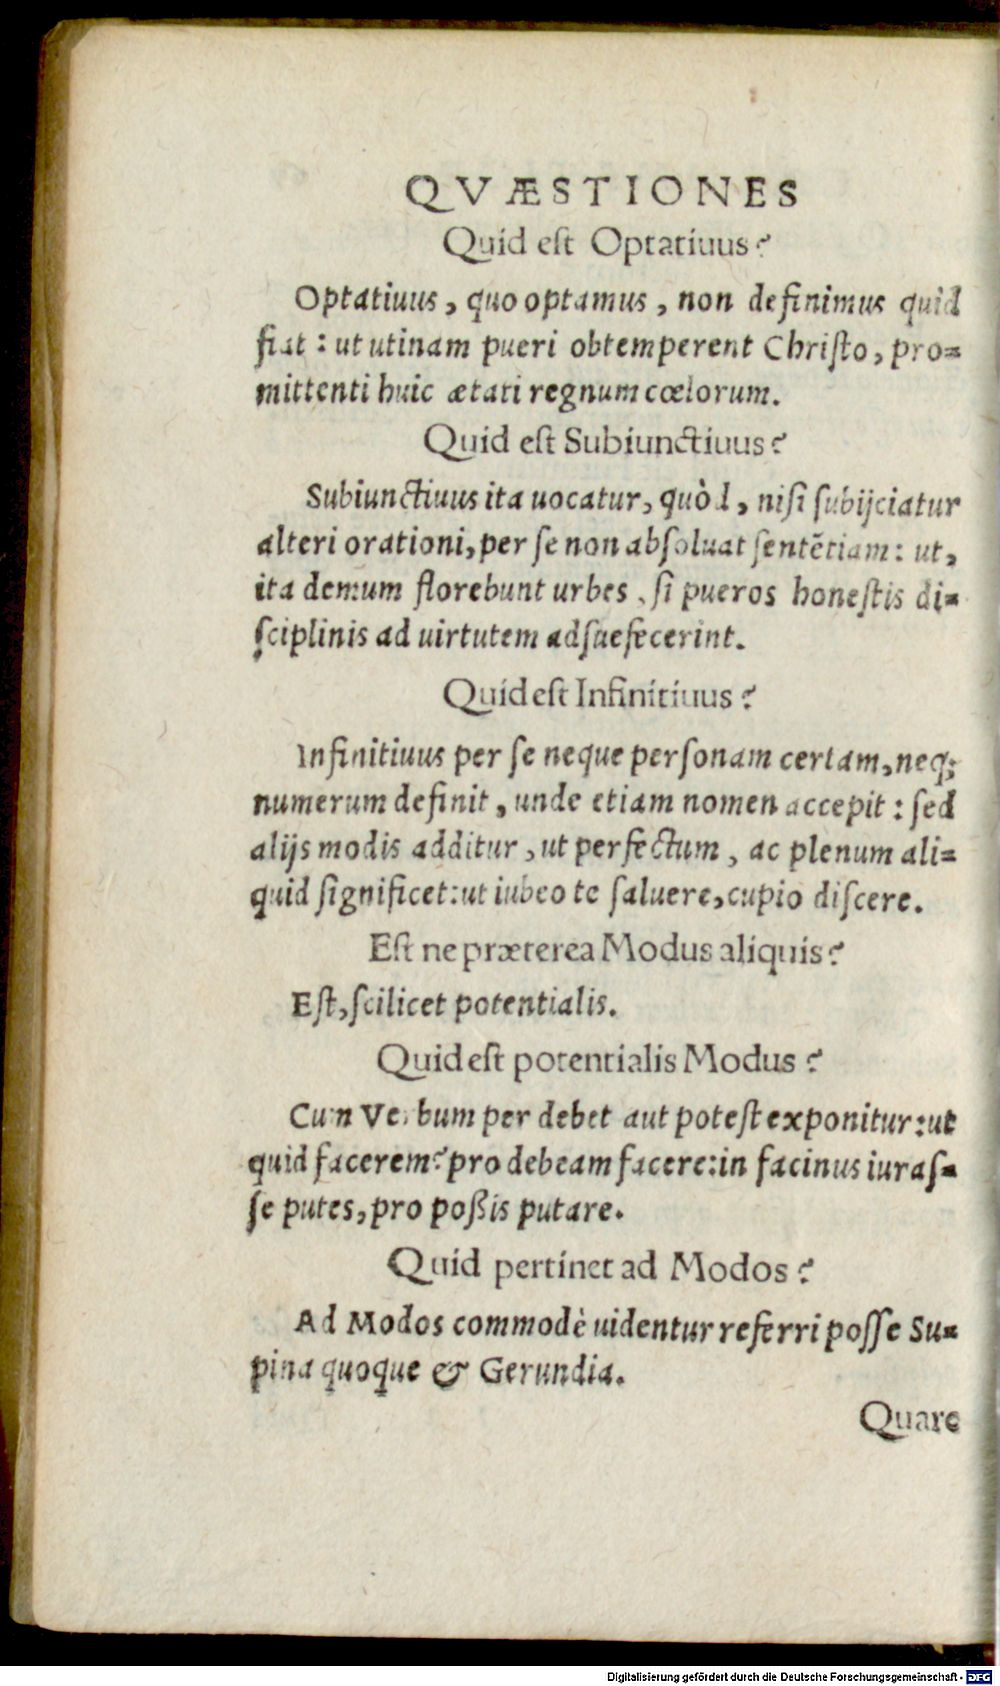 QVÆSTIONES
Quid est Optatiuus?
Optatiuus, quo optamus, non definimus quid
fiat: ut utinam pueri obtemperent Christo, pro-
mittenti huic ætati regnum cœlorum.
Quid est Subiunctiuus?
Subiunctiuus ita uocatur, quòd, nisi subijciatur
alteri orationi, per se non absoluat sentẽtiam: ut,
ita demum florebunt urbes, si pueros honestis di-
sciplinis ad uirtutem adsuefecerint.
Quid est Infinitiuus?
Infinitiuus per se neque personam certam, neq;
numerum definit, unde etiam nomen accepit: sed
alijs modis additur, ut perfectum, ac plenum ali-
quid significet: ut iubeo te saluere, cupio discere.
Est ne præterea Modus aliquis?
Est, scilicet potentialis.
Quid est potentialis Modus?
Cum Verbum per debet aut potest exponitur: ut
quid facerem? pro debeam facere: in facinus iuras-
se putes, pro poßis putare.
Quid pertinet ad Modos?
Ad Modos commodè uidentur referri posse Su-
pina quoque & Gerundia.
Quare
Digitalisierung gefördert durch die Deutsche Forschungsgemeinschaft - DFG